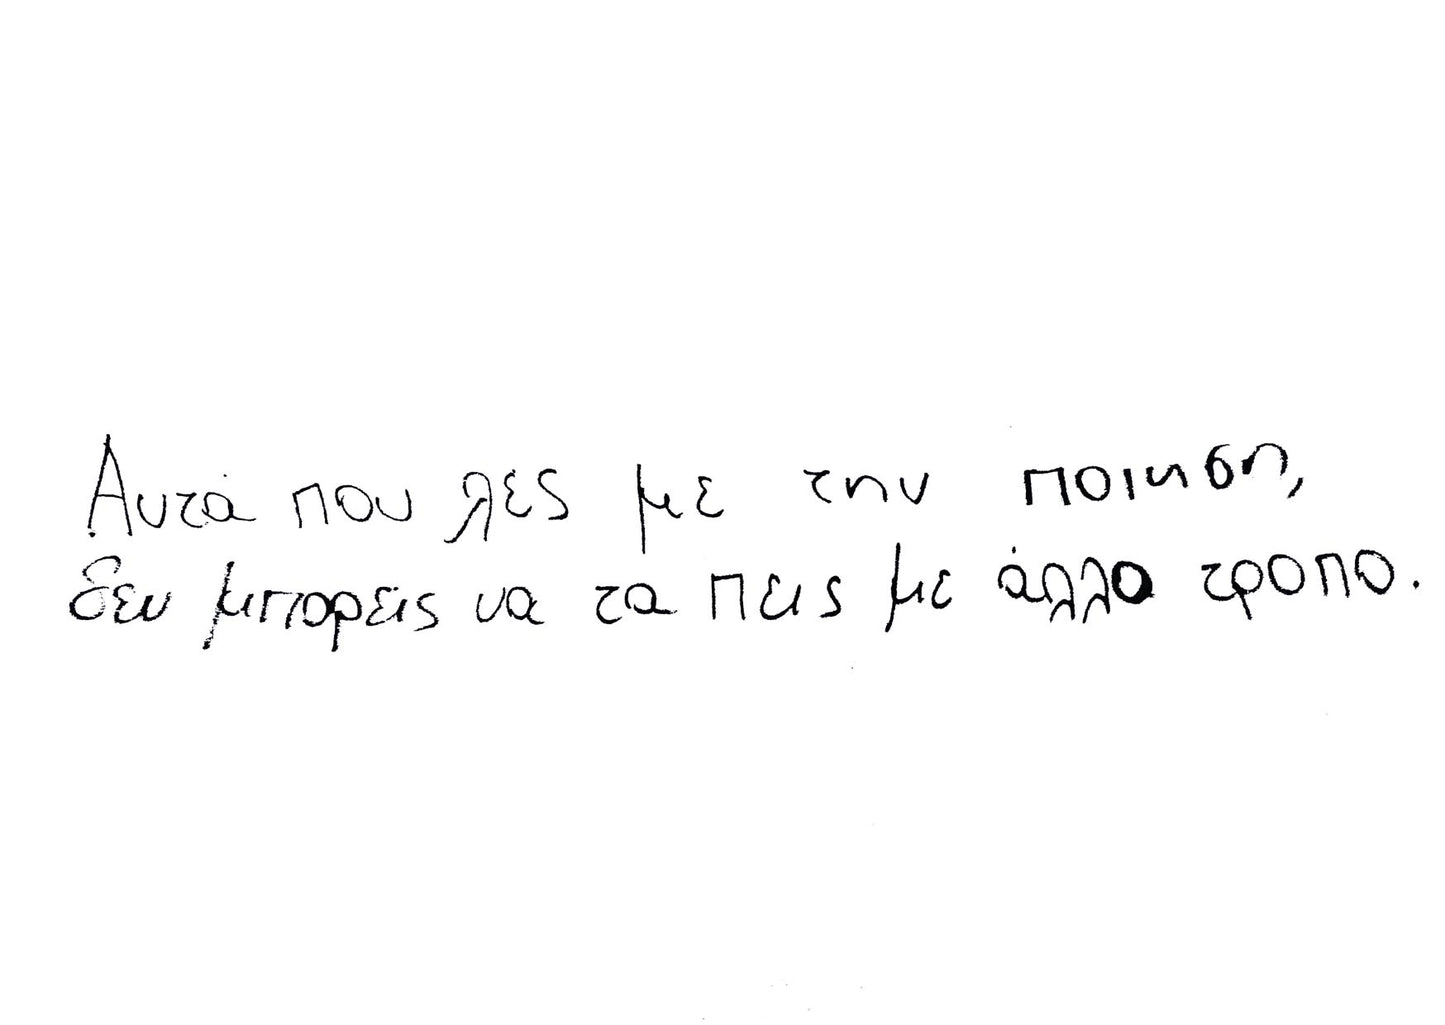 Αυτά που λές με την ποιηση,
δεν μπορείς να τα πεις με άλλο τροπο.